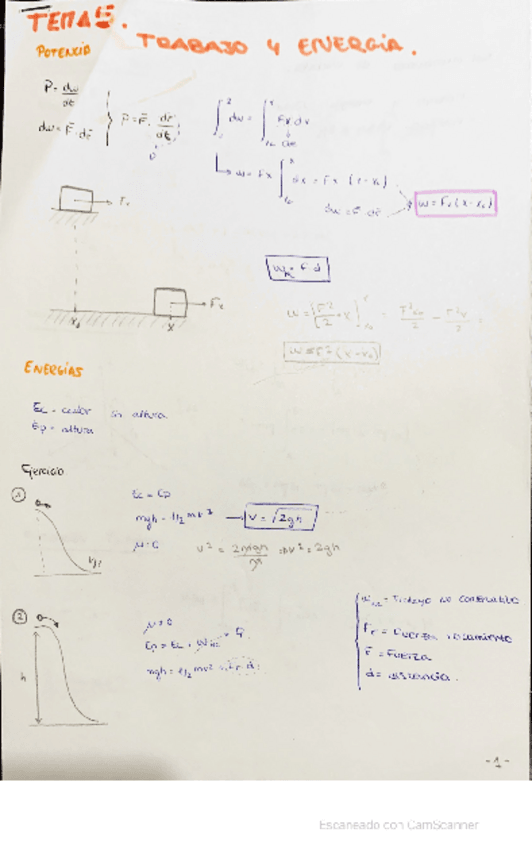 TEMA 5.
TRABAJO Y ENERGÍA.
POTENCIA
P = dw/dt
dw = F · dr
P = F · dr/dt
∫ dw = ∫ Fx dx
cte
w = Fx ∫ dx = Fx (x - x₀)
dw = F · dr
w = Fx (x - x₀)
Fx
x₀
x
Fx
w = F d
ENERGÍAS
Ec = sin altura
Ep = altura
Ejercicio
①
Ec = Ep
mgh = 1/2 mv²
v = √2gh
μ = 0
v² = 2mgh/m ⇒ v² = 2gh
②
h
Ep = Ec +
mgh = 1/2 mv²
Trabajo no conservativo
Fr = Fuerza rozamiento
F = Fuerza
d = distancia.
-1-
Escaneado con CamScanner